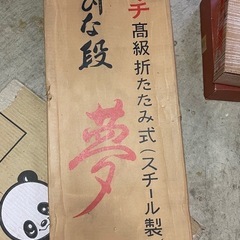 チ高級折たたみ式(スチール製
ひな段
夢